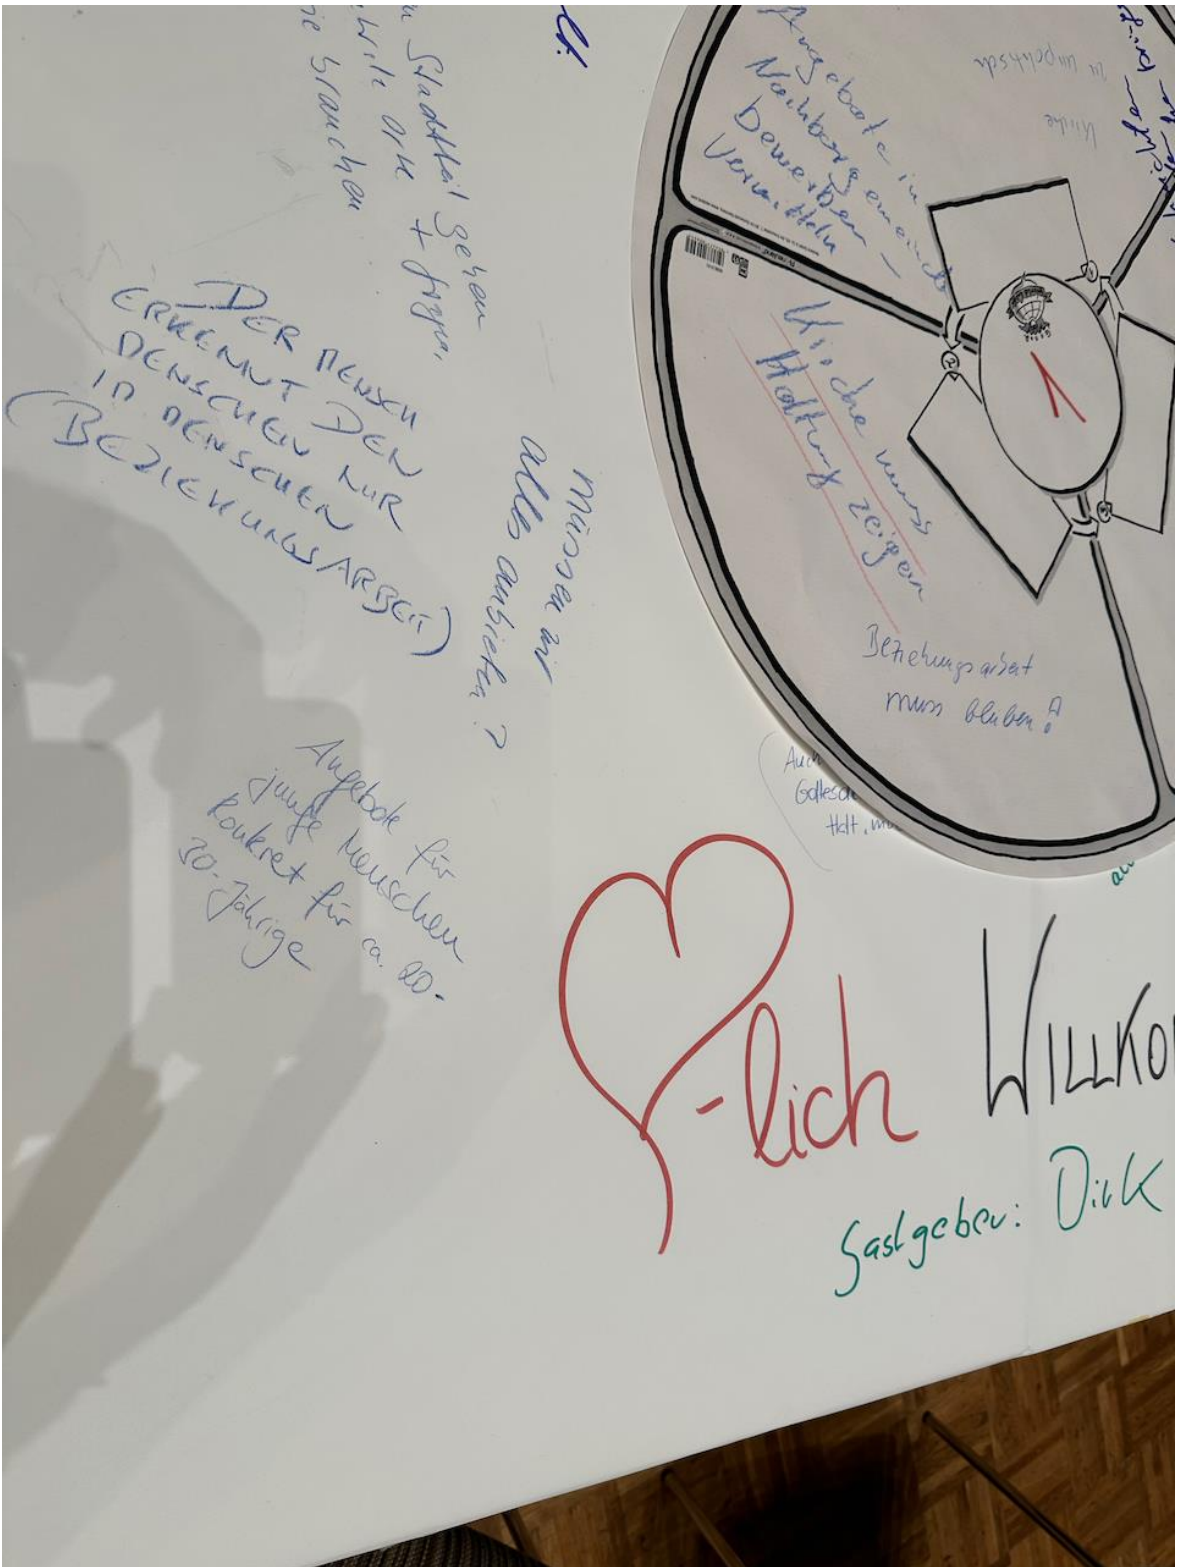 Stadtteil gehen
+ fragen,
brauchen
DER MENSCH
ERKENNT DEN
MENSCHEN NUR
IM MENSCHEN
(BEZIEHUNGSARBEIT)
müssen wir
alles anbieten?
Angebote für
junge Menschen
konkret für ca. 20-
30-Jährige
Angebote in
Nachbargemeinde
bewerben –
vermitteln
Kirche
zu unpolitisch
Kirche muss
Haltung zeigen
1
Beziehungsarbeit
muss bleiben!
Auch
Hält, 
♥-lich WILLKO
Gastgeber: Dirk